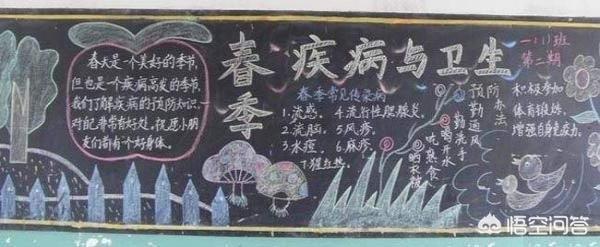 春天是一个美好的季节,
但也是一个疾病高发的季节,
我们了解疾病的预防知识,
对 非常有好处。祝愿小朋
友们都有个好身体。
春季疾病与卫生
一(1)班
第二期
春季常见传染病
1.流感. 4.流行性腮腺炎
2.流脑. 5.风疹.
3.水痘. 6.麻疹.
7.猩红热.
预防办法
勤通风
勤洗手
喝开水
吃熟食
晒衣被
积极参加
体育锻炼,
增强自身免疫力。
悟空问答